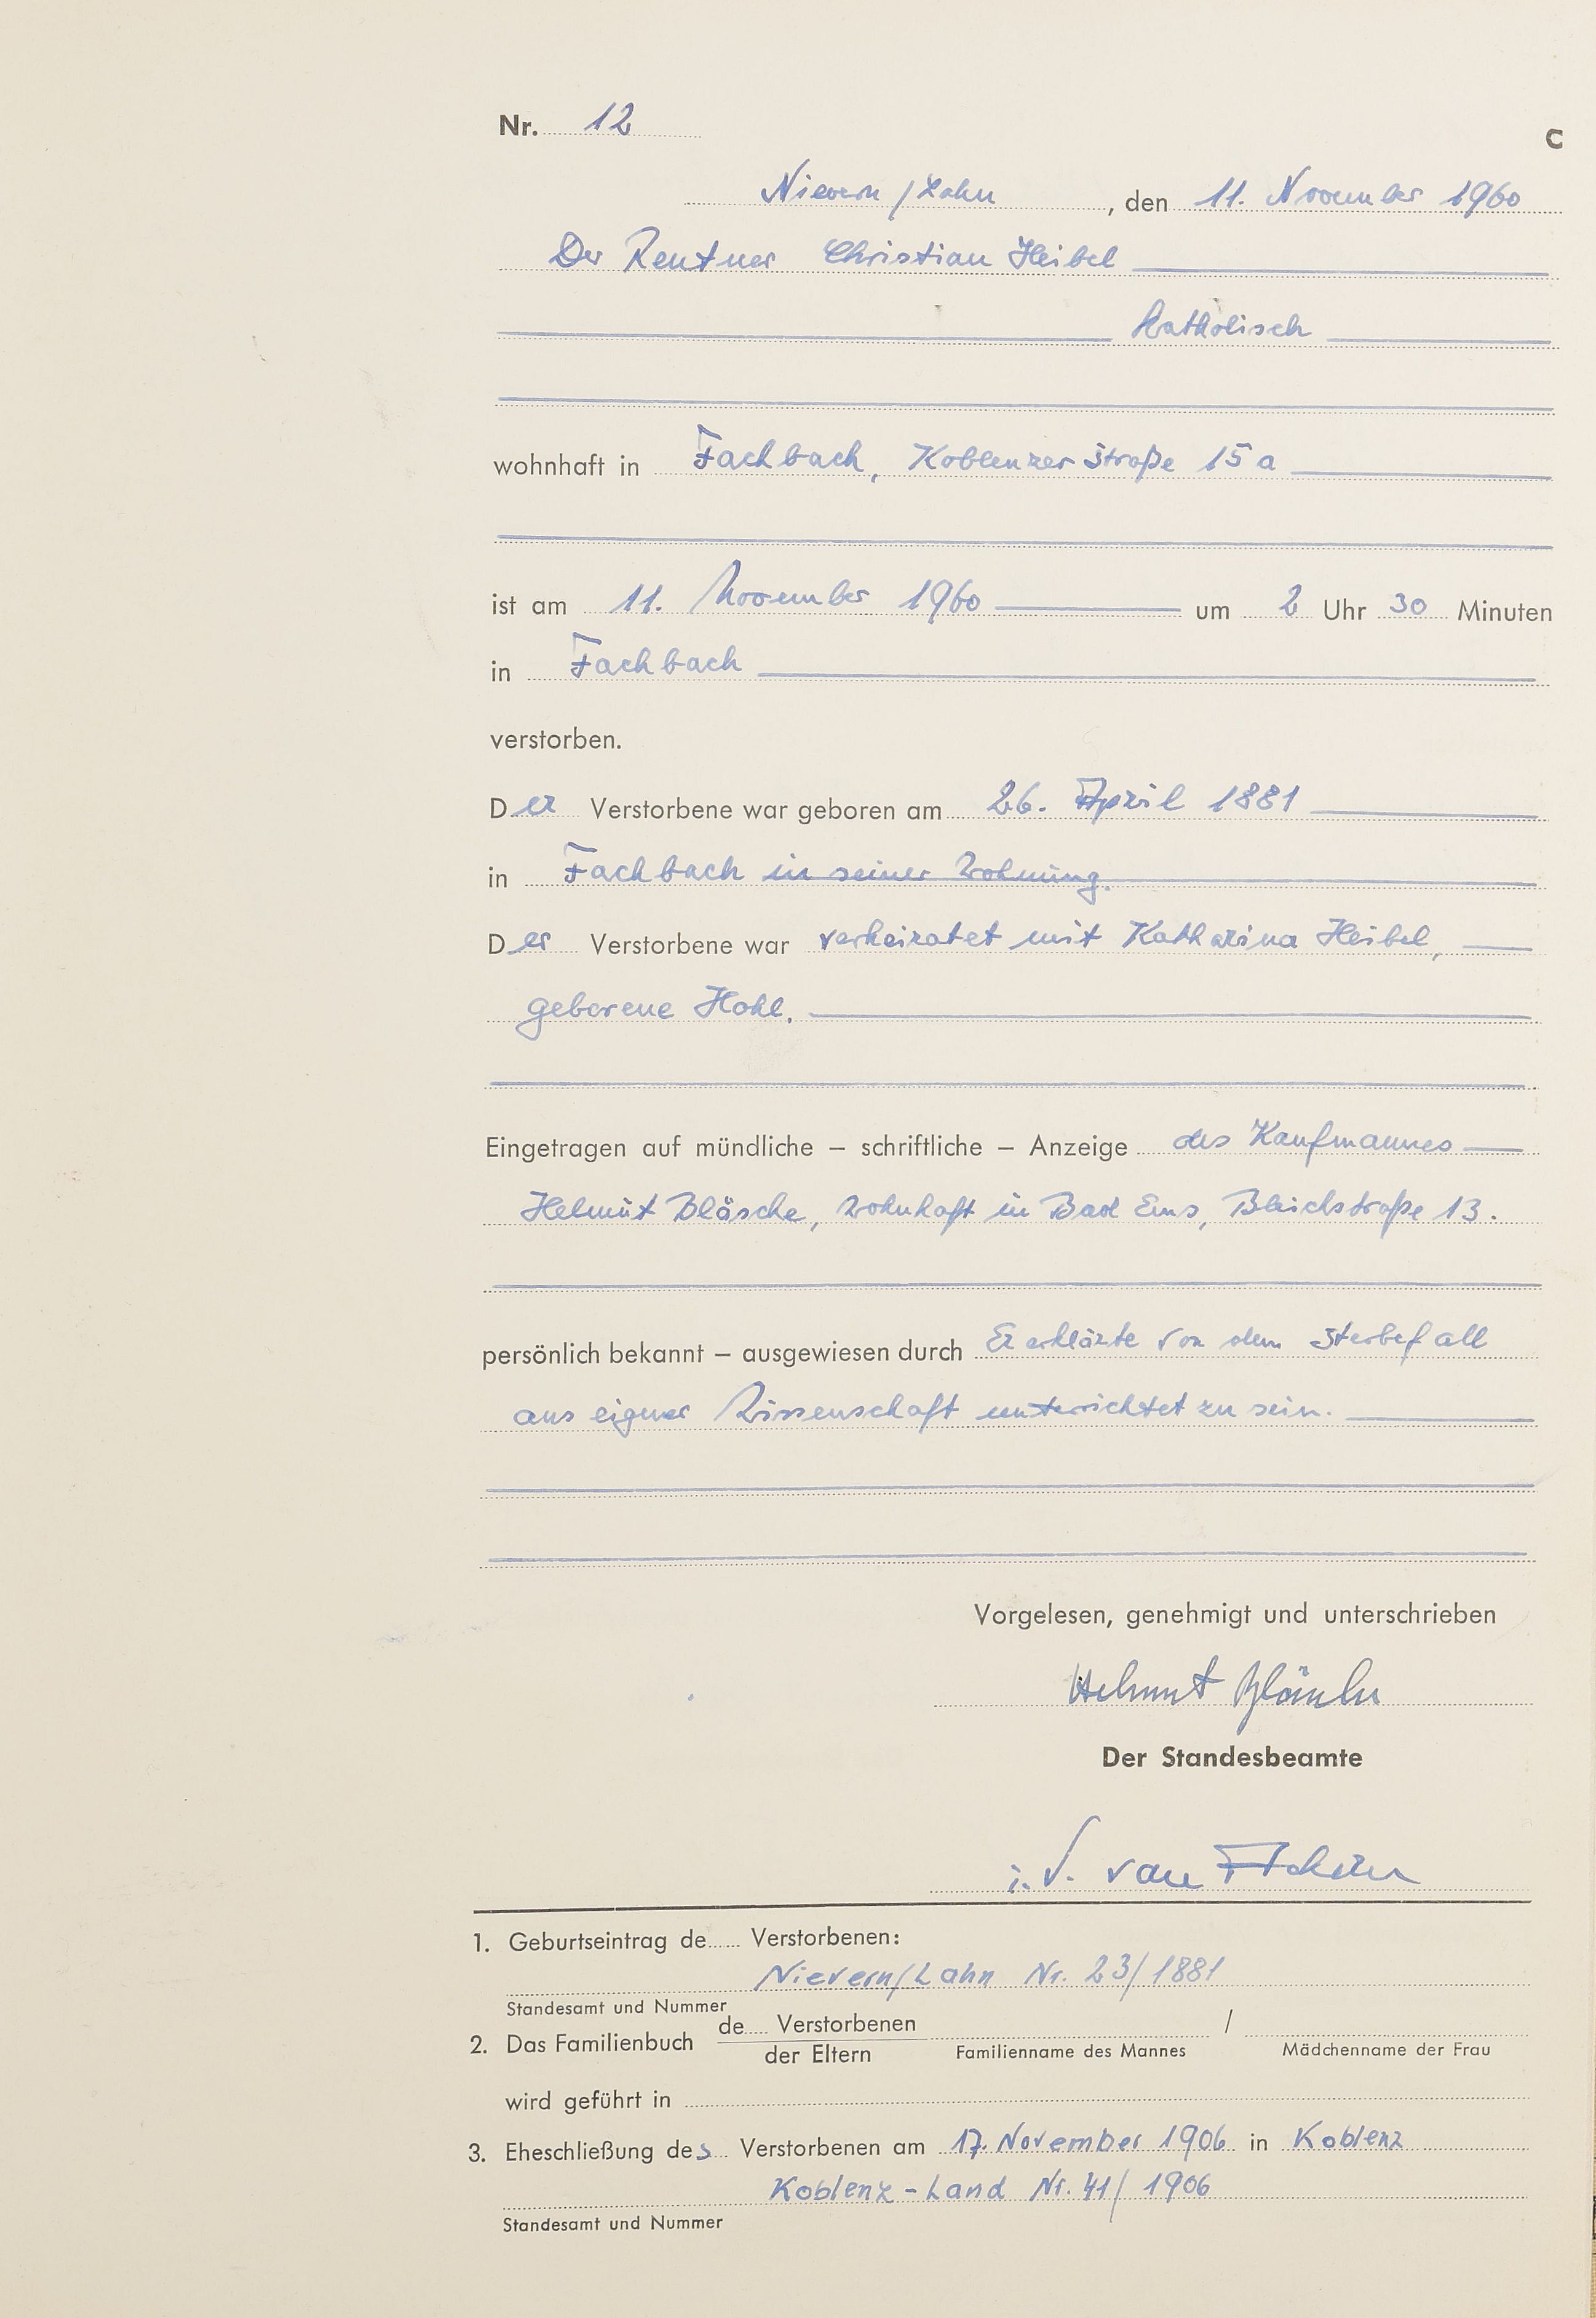 Nr. 12
C
Nievern/Lahn, den 11. November 1960
Der Rentner Christian Heibel
katholisch
wohnhaft in Fachbach, Koblenzer Straße 15a
ist am 11. November 1960 um 2 Uhr 30 Minuten
in Fachbach
verstorben.
Der Verstorbene war geboren am 26. April 1881
in Fachbach in seiner Wohnung.
Der Verstorbene war verheiratet mit Katharina Heibel,
geborene Hohl.
Eingetragen auf mündliche – schriftliche – Anzeige des Kaufmannes
Helmut Bläsche, wohnhaft in Bad Ems, Bleichstraße 13.
persönlich bekannt – ausgewiesen durch Er erklärte von dem Sterbefall
aus eigner Wissenschaft unterrichtet zu sein.
Vorgelesen, genehmigt und unterschrieben
Helmut Bläsche
Der Standesbeamte
i.V. van
1. Geburtseintrag de Verstorbenen:
Nievern/Lahn Nr. 23/1881
Standesamt und Nummer
2. Das Familienbuch de Verstorbenen /
der Eltern Familienname des Mannes Mädchenname der Frau
wird geführt in
3. Eheschließung des Verstorbenen am 17. November 1906 in Koblenz
Koblenz-Land Nr. 41/1906
Standesamt und Nummer